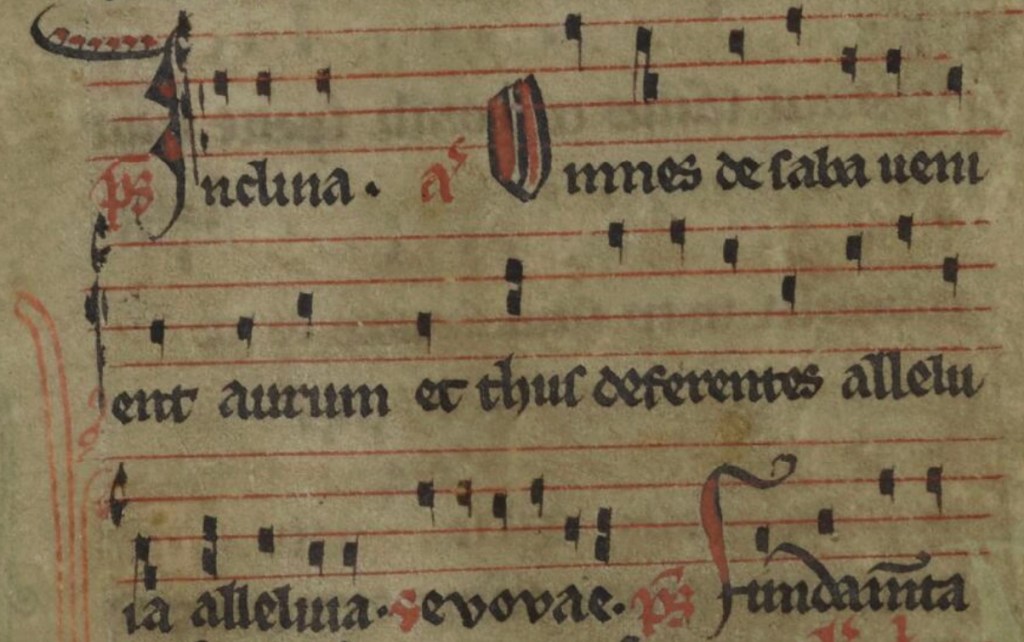 p̄s Inclina. aͬ Omnes de saba ueni
ent aurum et thus deferentes allelu
ia alleluia. Seuouae. p̄s Fundam̄ta